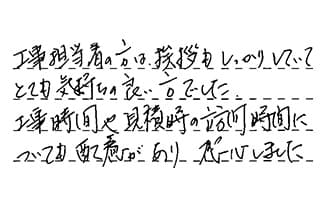 工事担当者の方は、挨拶もしっかりしていて
とても気持ちの良い方でした。
工事時間や見積時の訪問時間に
ついても配慮があり、感心しました